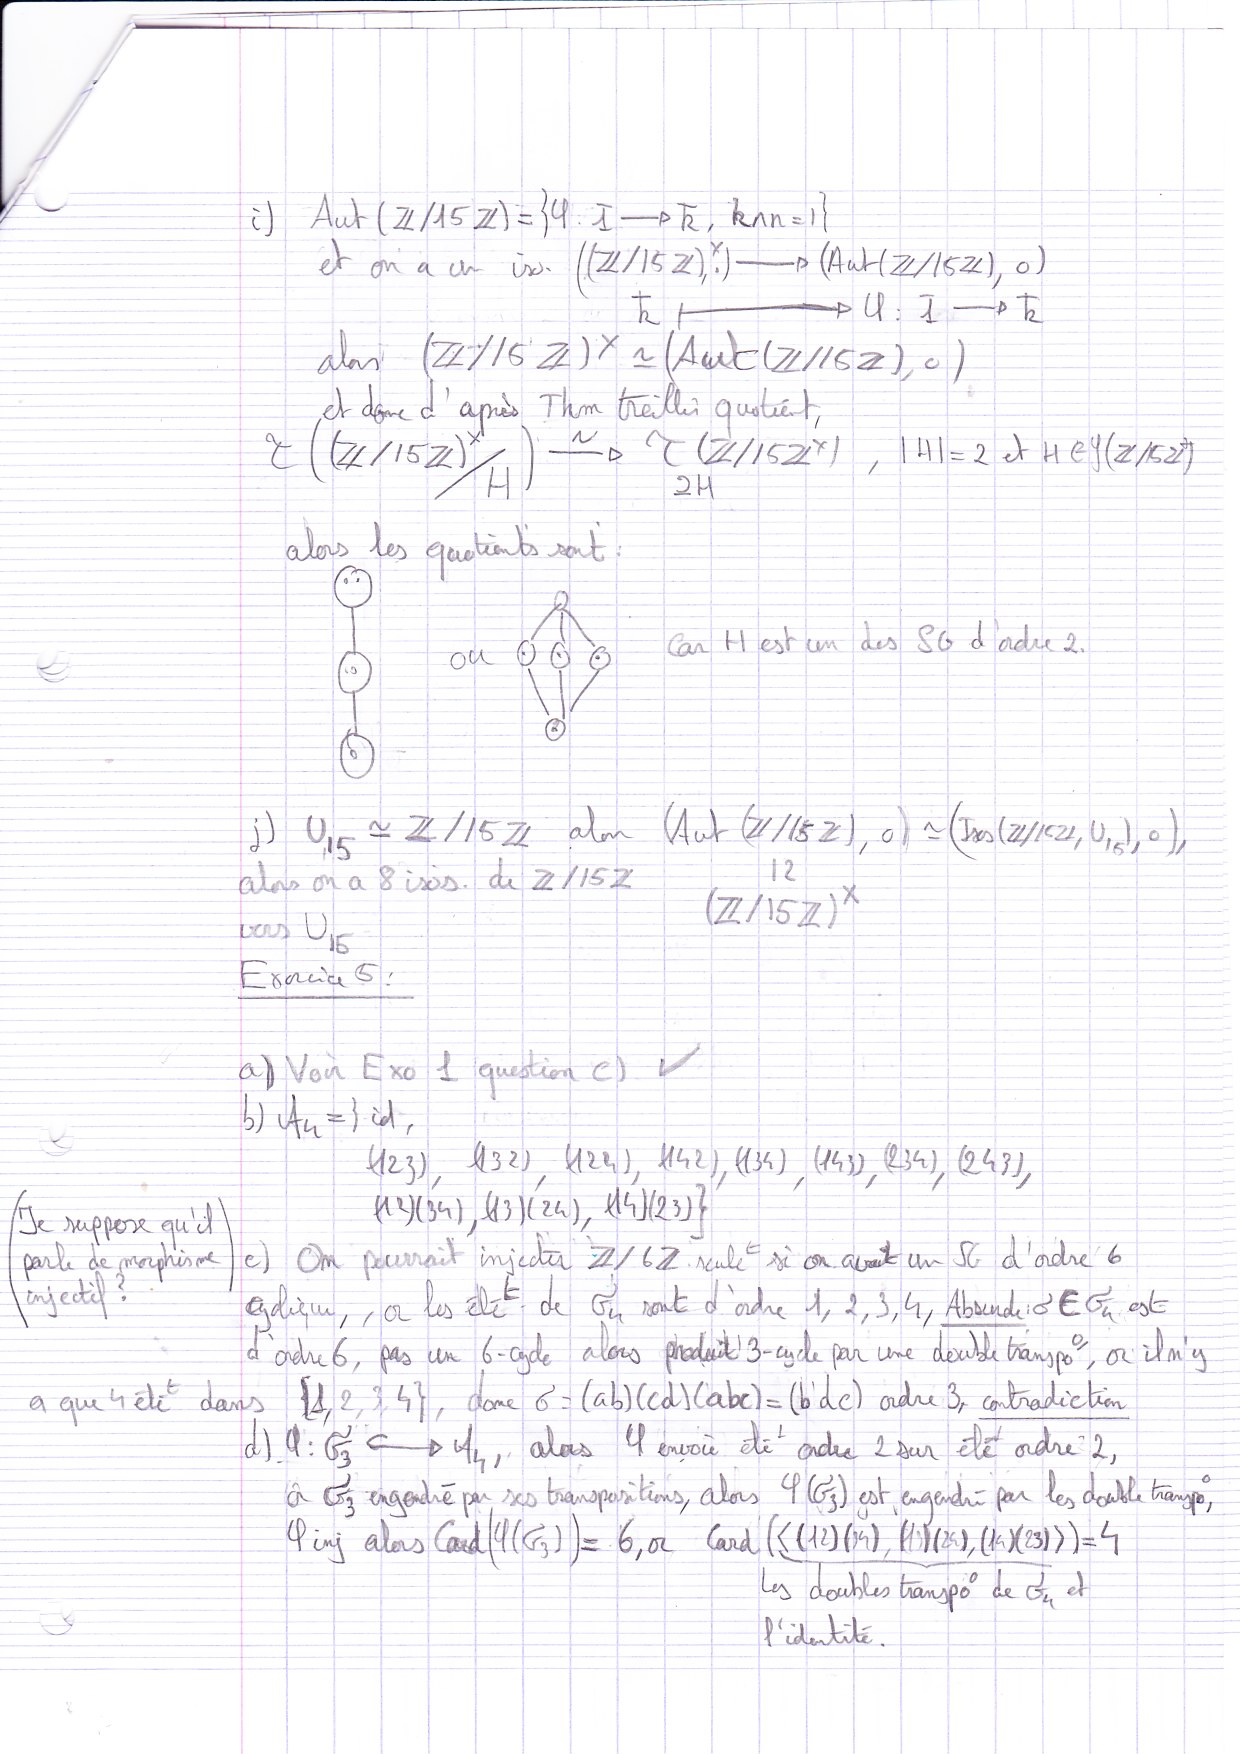 i) Aut(ℤ/15ℤ) = {φ: 1̄ → k̄, k∧n=1}
et on a un iso. ((ℤ/15ℤ)^×, ·) → (Aut(ℤ/15ℤ), o)
k̄ ↦ φ: 1̄ → k̄
alors (ℤ/15ℤ)^× ≃ (Aut(ℤ/15ℤ), o)
et donc d'après Thm treillis quotient,
τ((ℤ/15ℤ)^×/H) ⥲ τ_{⊇H}(ℤ/15ℤ^×), |H|=2 et H ∈ 𝒮(ℤ/15ℤ^×)
alors les quotients sont:
ou
Car H est un des SG d'ordre 2.
j) U₁₅ ≃ ℤ/15ℤ alors (Aut(ℤ/15ℤ), o) ≃ (Isos(ℤ/15ℤ, U₁₅), o),
alors on a 8 isos. de ℤ/15ℤ
vers U₁₅
≃
(ℤ/15ℤ)^×
Exercice 5:
a) Voir Exo 1 question c) ✓
b) A₄ = {id,
(123), (132), (124), (142), (134), (143), (234), (243),
(12)(34), (13)(24), (14)(23)}
(Je suppose qu'il
parle de morphisme
injectif?)
c) On pourrait injecter ℤ/6ℤ seulᵗ si on avait un SG d'ordre 6
cyclique, or les éléᵗ de 𝔖₄ sont d'ordre 1, 2, 3, 4, Absurde: σ ∈ 𝔖₄ est
d'ordre 6, pas un 6-cycle alors produit 3-cycle par une double transpo°, or il n'y
a que 4 éléᵗ dans {1,2,3,4}, donc σ = (ab)(cd)(abc) = (bdc) ordre 3, contradiction
d) φ: 𝔖₃ ↪ A₄, alors φ envoie éléᵗ ordre 2 sur éléᵗ ordre 2,
or 𝔖₃ engendré par ses transpositions, alors φ(𝔖₃) est engendré par les double transpo°,
φ inj alors Card(φ(𝔖₃)) = 6, or Card(⟨(12)(34), (13)(24), (14)(23)⟩) = 4
les doubles transpo° de 𝔖₄ et
l'identité.